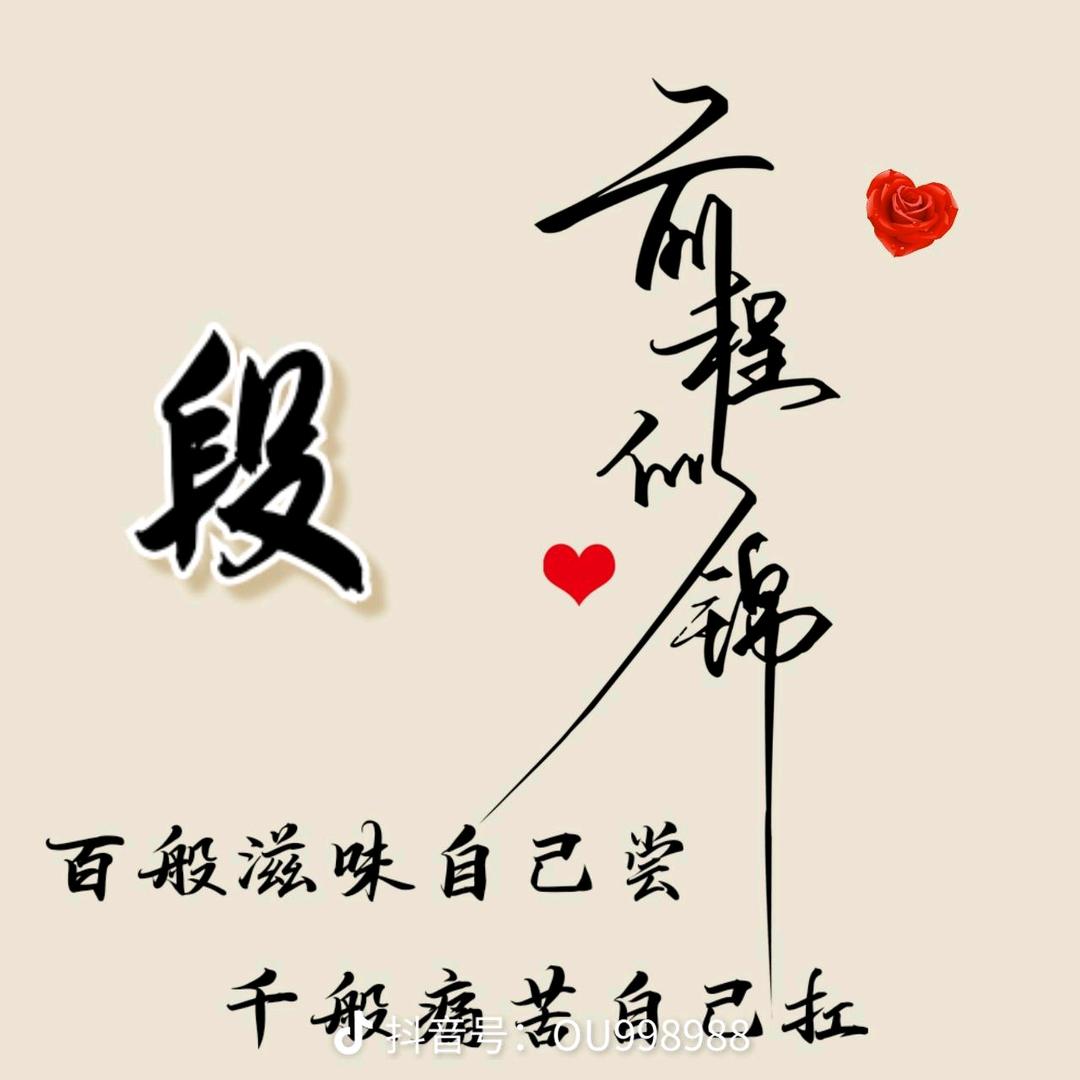 前程似锦
段
百般滋味自己尝
千般痛苦自己扛
抖音号：OU998988